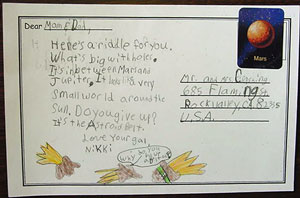 Dear Mom & Dad,
Here's a riddle for you.
What's big with holes,
It's in between Mars and
Jupiter, It looks like a very
small world around the
Sun. Do you give up?
It's the Astroid Belt.
Love your gal,
Nikki
Mars
Mr. and Mrs.
685 Flaming
U.S.A.